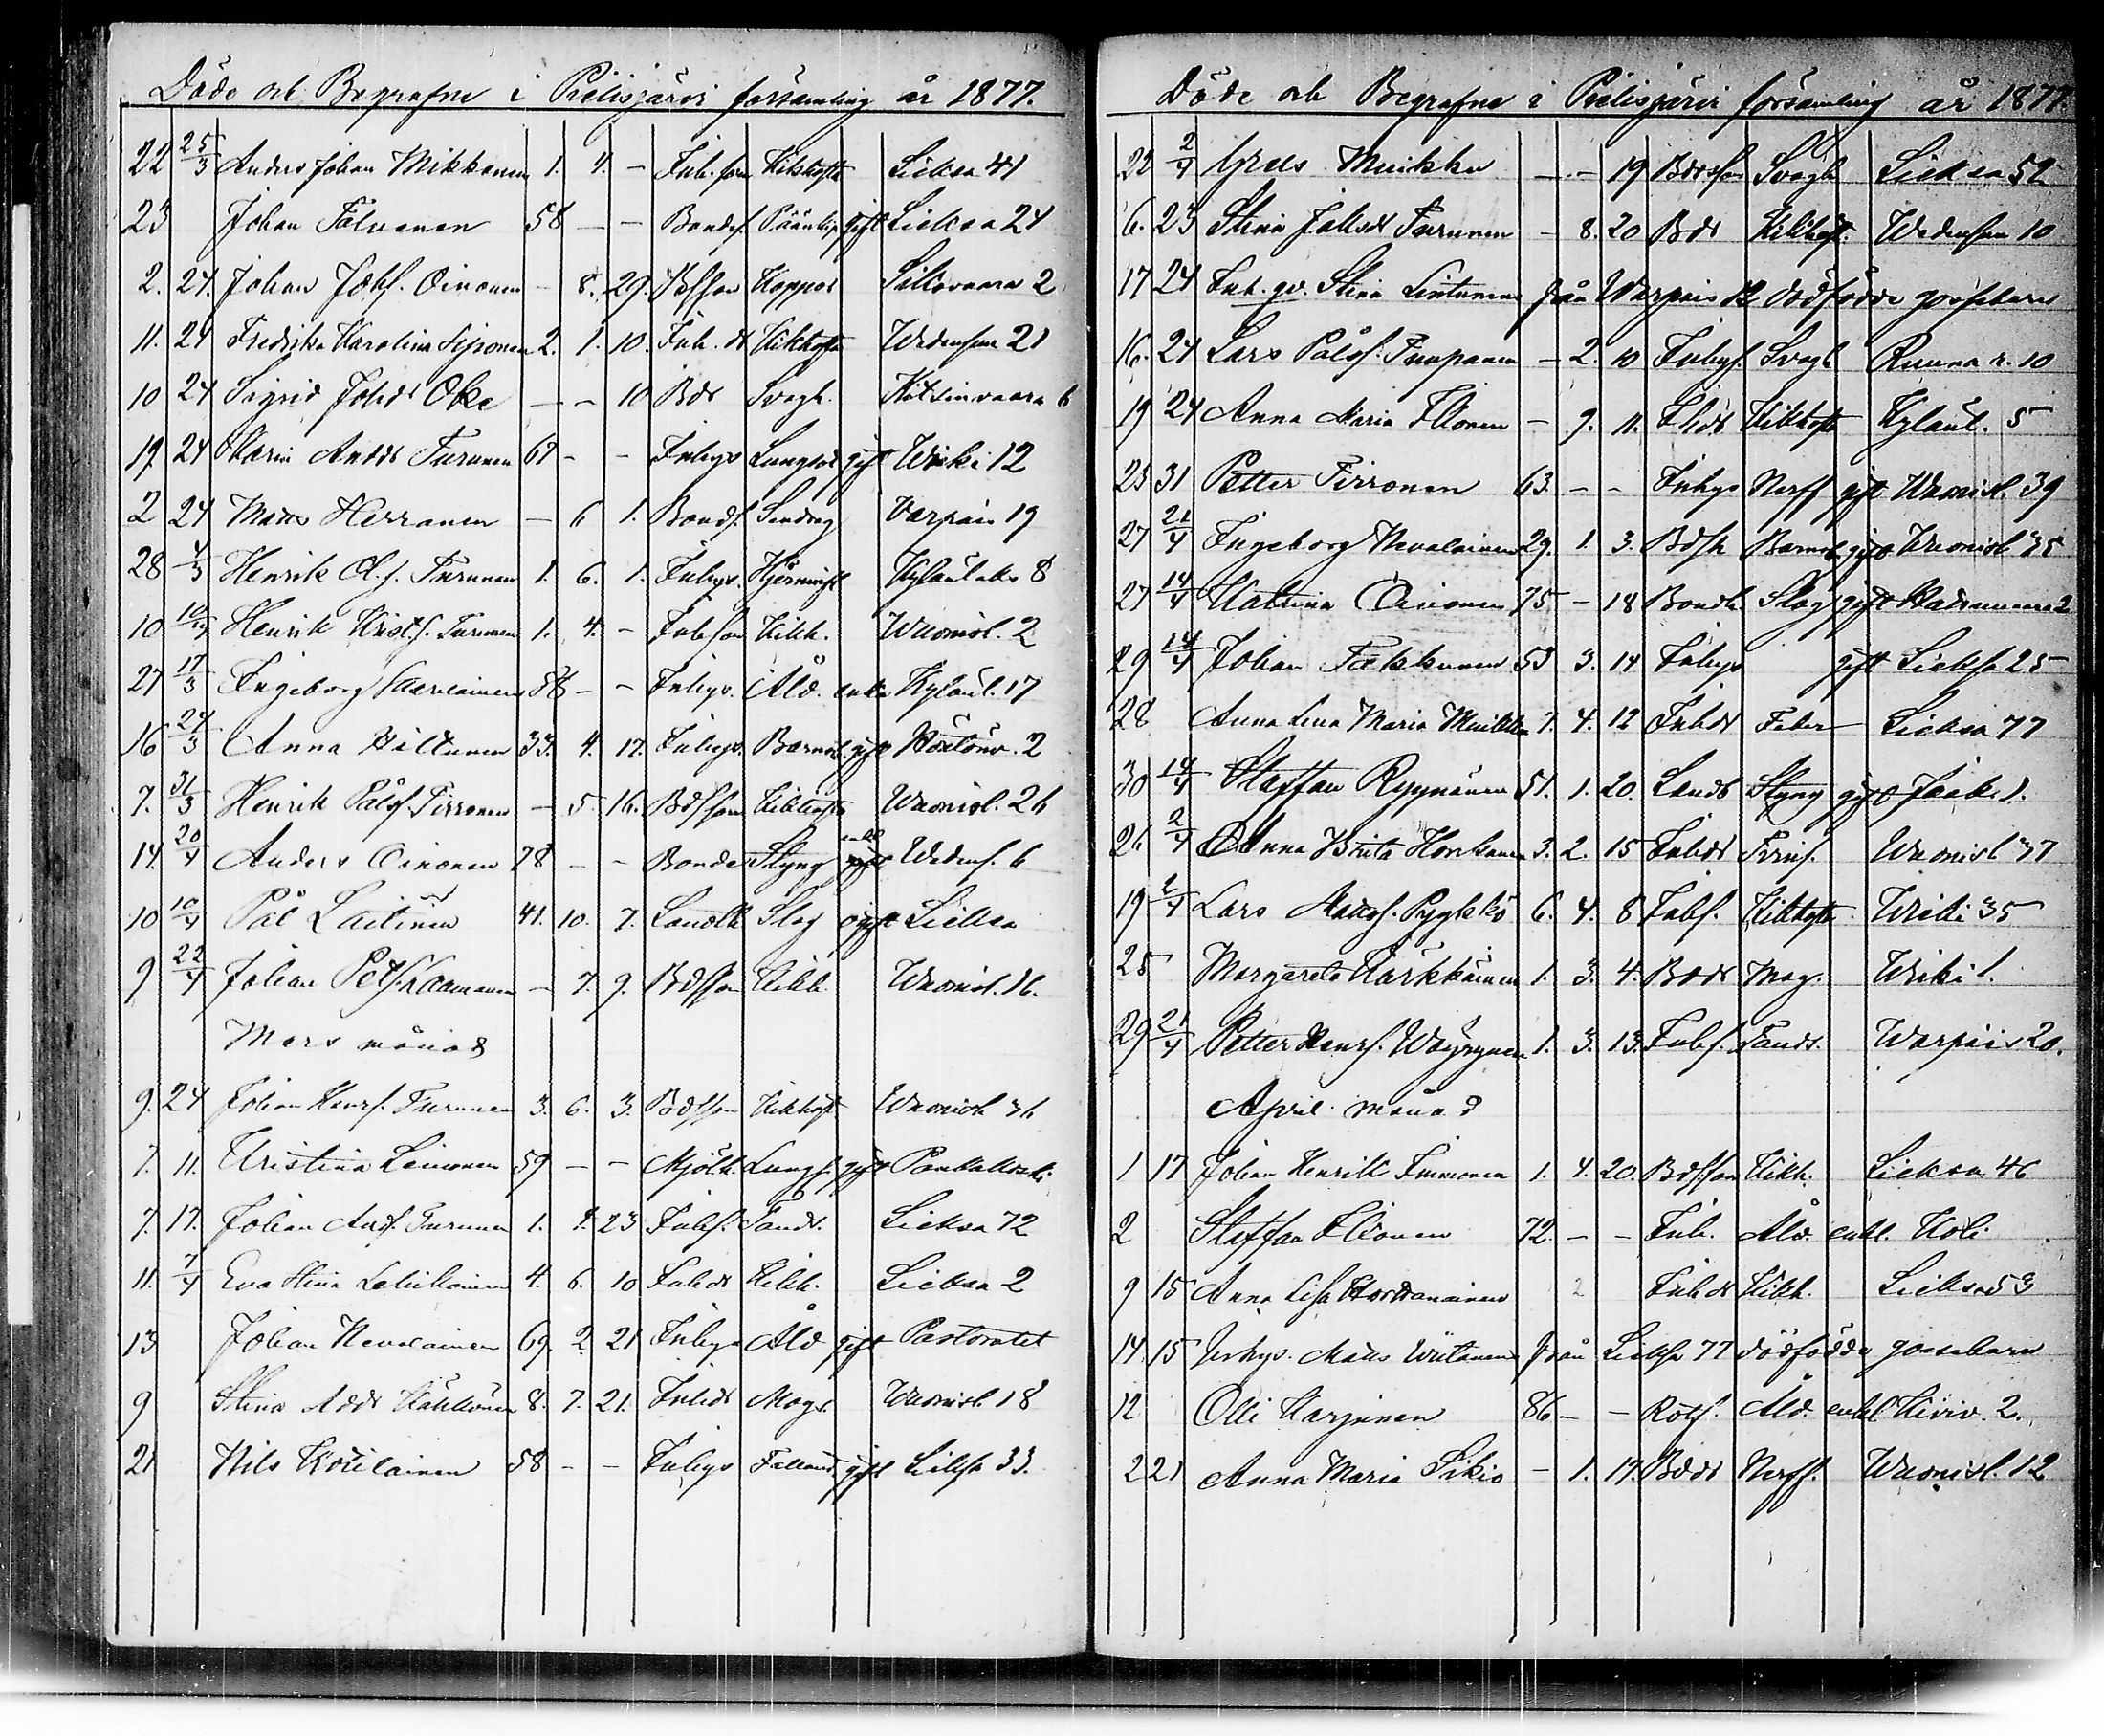 Döde och Begrafne i Pielisjärvi församling år 1877.
22 25/3 Anders Johan Mikkonen 1. 4. - Inh. son Kikhosta Lieksa 41
23 Johan Tolvanen 58 - - Bondes. gift Lieksa 24
2. 24. Johan Johs. Oinonen - 8. 29. Bdsson Koppor Sillovaara 2
11. 24 Fredrika Karolina Siponen 2. 1. 10. Inh. dr Kikhosta Wedensuu 21
10 24 Sigrid Johdr Oke - - 10 Bdr Svagh. Kitsinvaara 6
19. 24 Karin Anddr Turunen 67 - - Inhys Lungsot gift Wieki 12
2 24 Matts Herranen - 6 1. Bonds. Varpais 19
28 4/3 Henrik Ol. s. Turunen 1. 6. 1. Inhys. Kylänlaks 8
10 10/4 Henrik Krist. s. Turunen 1. 4. - Inhson Kikh. Wuonisl. 2
27 17/3 Ingeborg 58 - - Inhys. Åld. enka Kylänl. 17
16 24/3 Anna Hiltunen 33. 4. 17. Inhys. Barnsb. gift 2
7. 31/3 Henrik Pålss. Pirronen - 5. 16. Bdsson Kikhosta Wuonisl. 26
14. 20/4 Anders Oinonen 78 - - Bonde Styng enkl Wedens. 6
10 10/4 Pål Laitinen 41. 10. 7. Slag ogift Lieksa
9 22/4 Johan Pets. Kaamanen - 7. 9. Bdsson Kikh. Wuonisl. 16.
Mars månad
9. 24 Johan Henrs. Turunen 3. 6. 3. Bdsson Kikhost Wuonisl 36
7. 11. Kristina Leinonen 59 - - Mjölk. Lungs. gift Pankakoski
7. 17. Johan Ands. Turunen 1. 8. 23 Inhs. Tands. Lieksa 72
11. 7/4 Eva Stina Lehikoinen 4. 6. 10 Inhdr Kikh. Lieksa 2
13 Johan Nevalainen 69. 2. 21 Inhys Åld gift Pastoratet
9 Stina Addr 8. 7. 21. Inhdr Mags. Wuonisl 18
21 Nils Kotilainen 58 - - Inhys gift Lieksa 33.
Döde och Begrafne i Pielisjärvi församling år 1877.
22 2/4 Muikku - - 19 Bdrson Svagh Lieksa 52
6. 23 Stina Johsdr Turunen - 8. 20 Bdr Kikhost. Wedensuu 10
17 24 Inh. gd. Stina Lintunen från Warpais 12 dödfödde gossebarn
16. 24 Lars Pålss. Timpanen - 2. 10 Inhys. Svagh Ruuna r. 10
19 24 Anna Maria Ikonen - 9. 11. Inhdr Kikhosta Kylänl. 5
25 31 Petter Pirronen 63 - - Inhys Nerff gift Wuonisl. 39
27 21/4 Ingeborg Nevalainen 29. 1. 3. Bdsh Barnsb. gift Wuonisl 35
27 14/4 Katrina Oinonen 75 - 18 Bondh Slag gift 2
29 14/4 Johan Takkunen 53 3. 14 Inhys gift Lieksa 25
28 Anna Lena Maria Muikku 7. 4. 12 Inhdr Feber Lieksa 77
30 14/4 Staffan Ryynänen 51. 1. 20. Landb Styng gift 1.
26 2/4 Anna Brita Horskanen 3. 2. 15 Inhdr Wuonisl 37
19 2/4 Lars Matss. Pyykkö 6. 4. 8 Inhs. Kikhosta Wieki 35
25 Margareta Kärkkäinen 1. 3. 4. Bddr Mag. Wieki 1.
29 21/4 Petter Henrs. Wäyrynen 1. 3. 13. Inhs. Tands. Warpais 20.
April månad
1 17 Johan Henrik Immonen 1. 4. 20. Bdsson Kikh. Lieksa 46
2 Staffan Ikonen 72. - - Inh. Åld. enkl. Koli
9 15 Anna Lisa 2 Inhdr Kikh. Lieksa 53
14. 15 Inhys. Matts Wiitanen från Lieksa 77 dödfödde gossebarn
12 Olli Karjunen 86 - - Rotf. Åld. enkl 2.
2 21 Anna Maria Sikiö - 1. 17. Bddr Nerff. Wuonisl. 12